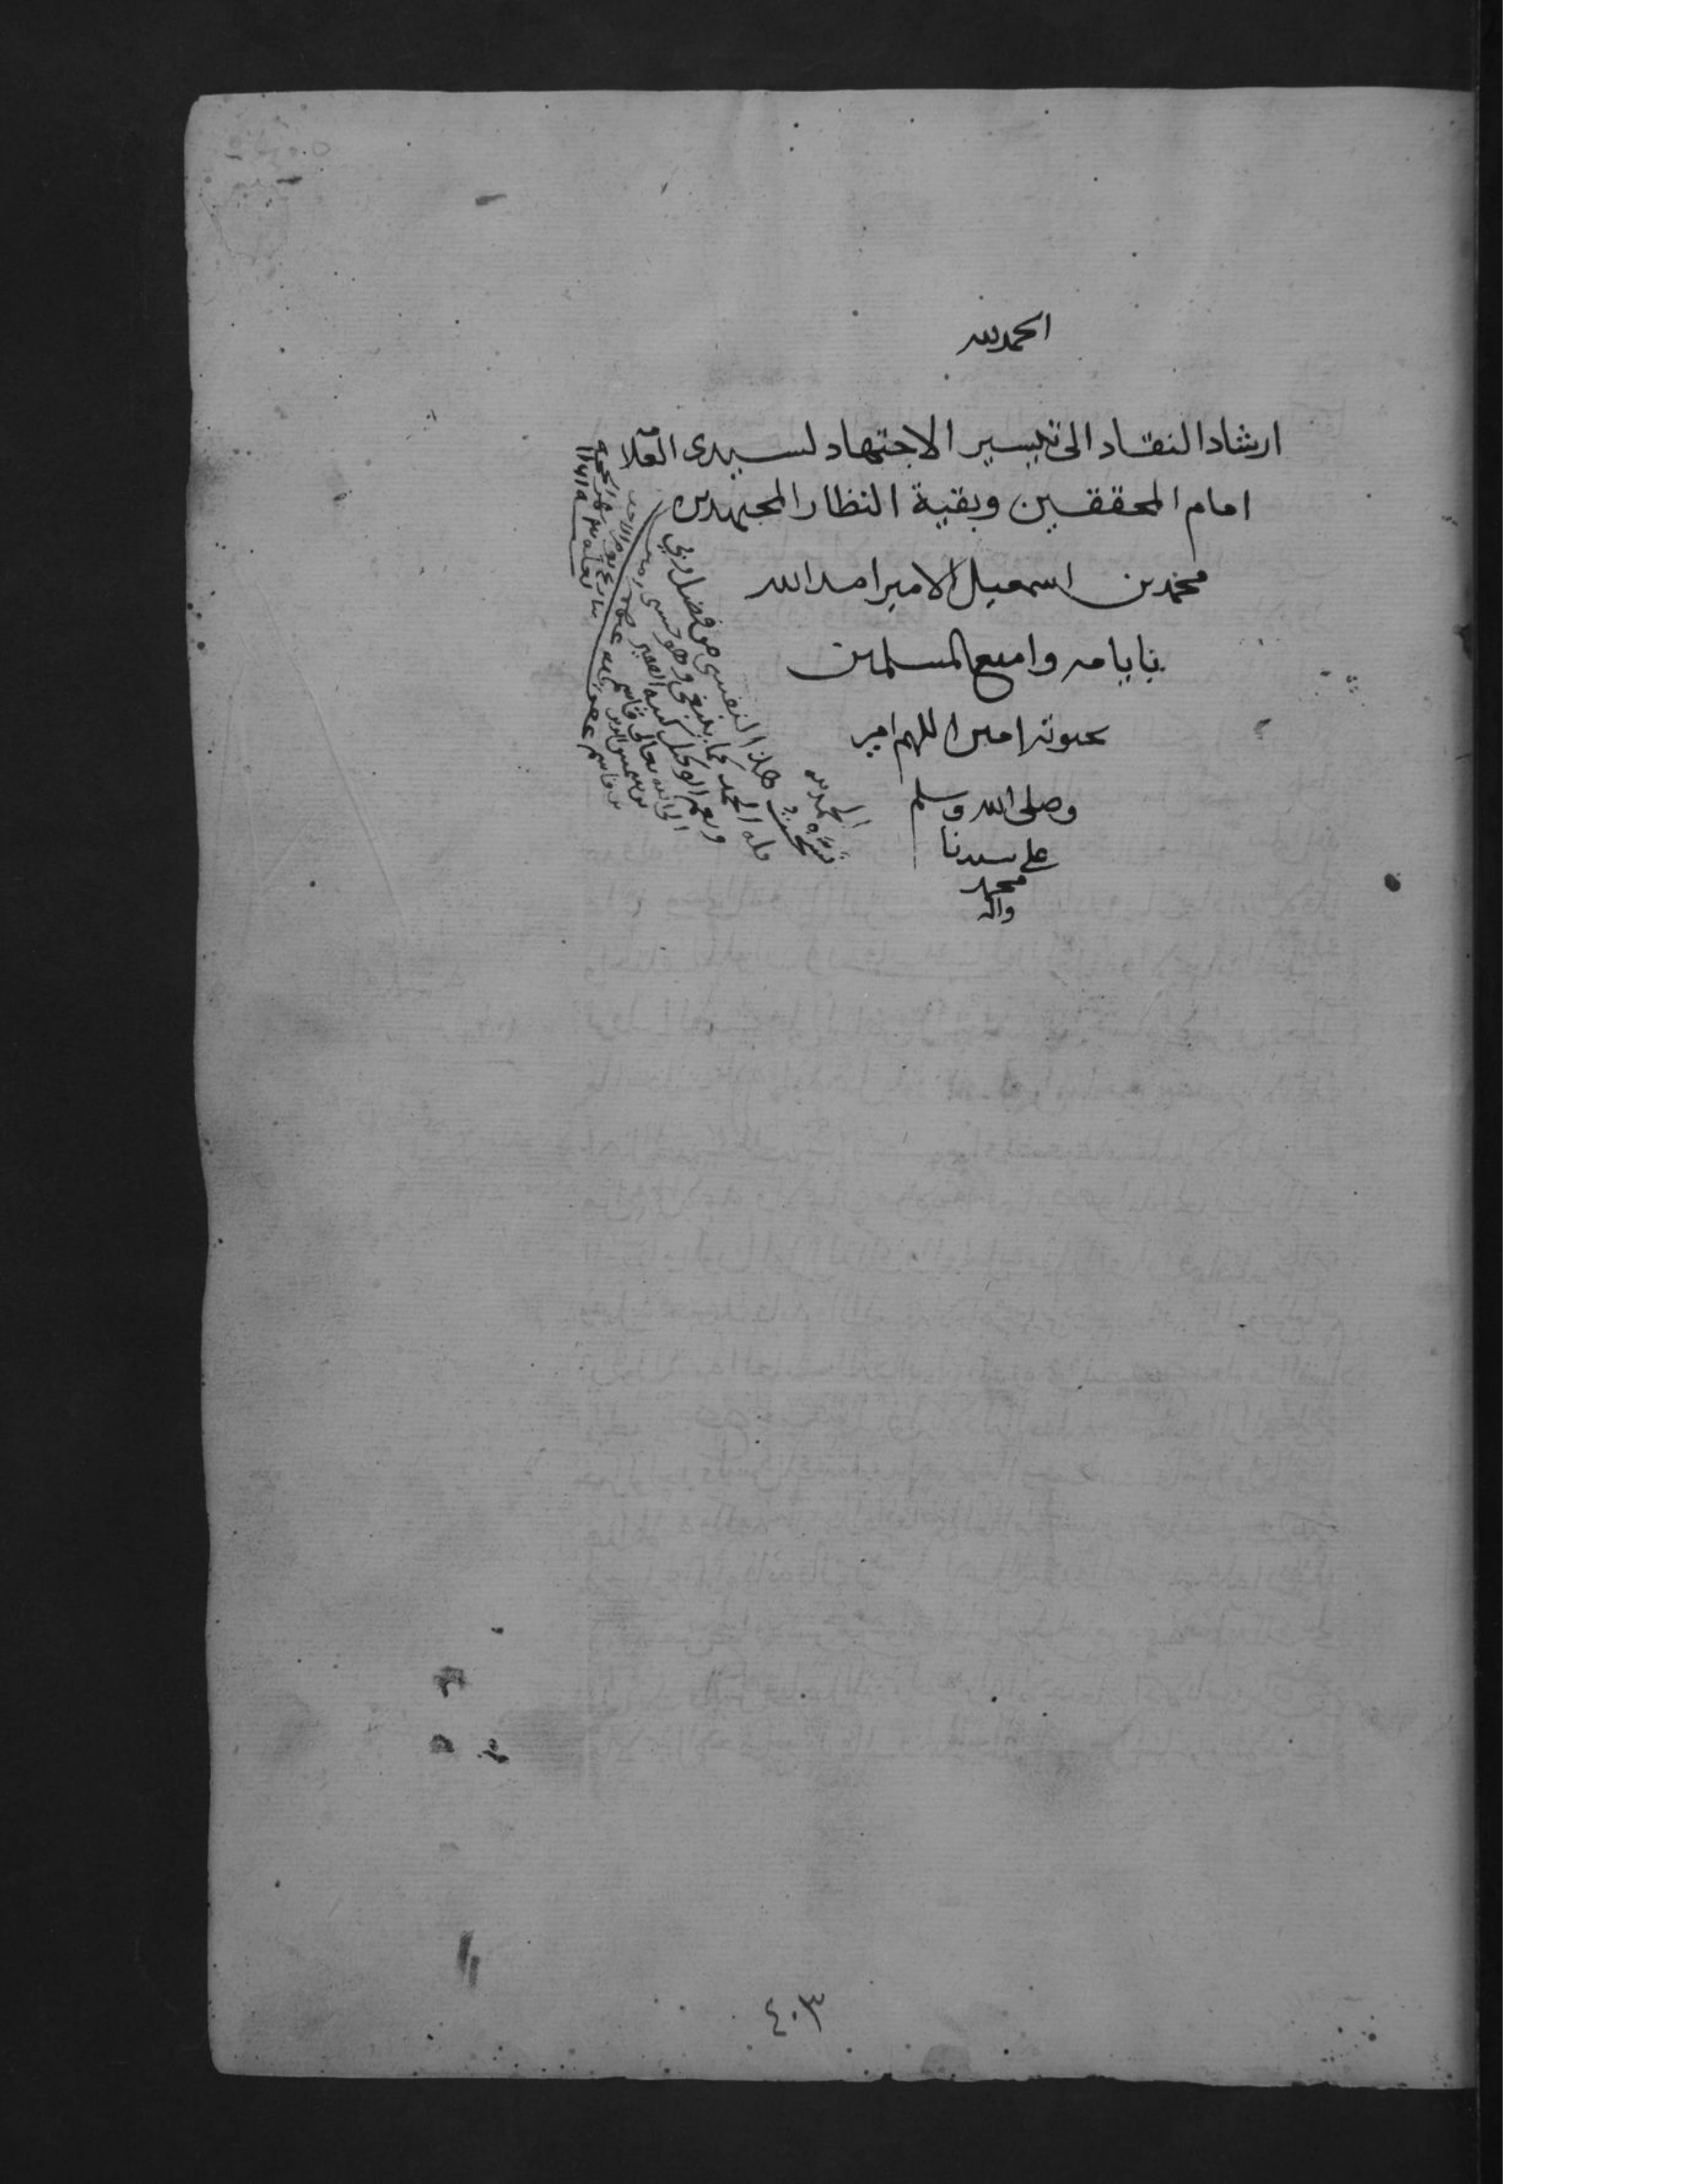 الحمد لله
ارشاد النقاد الى تيسير الاجتهاد لسيدى العلامة
امام المحققين وبقية النظار المجتهدين
محمد بن اسمعيل الامير امد الله
بايامه وامتع المسلمين
بحيوته امين اللهم امين
وصلى الله وسلم
على سيدنا
محمد
واله
الحمد لله
نسخت هذا لنفسى من فضل ربي
فله الحمد كما ينبغي وهو حسبى
ونعم الوكيل كتبه الفقير
الى الله تعالى قاسم
٤٠٣